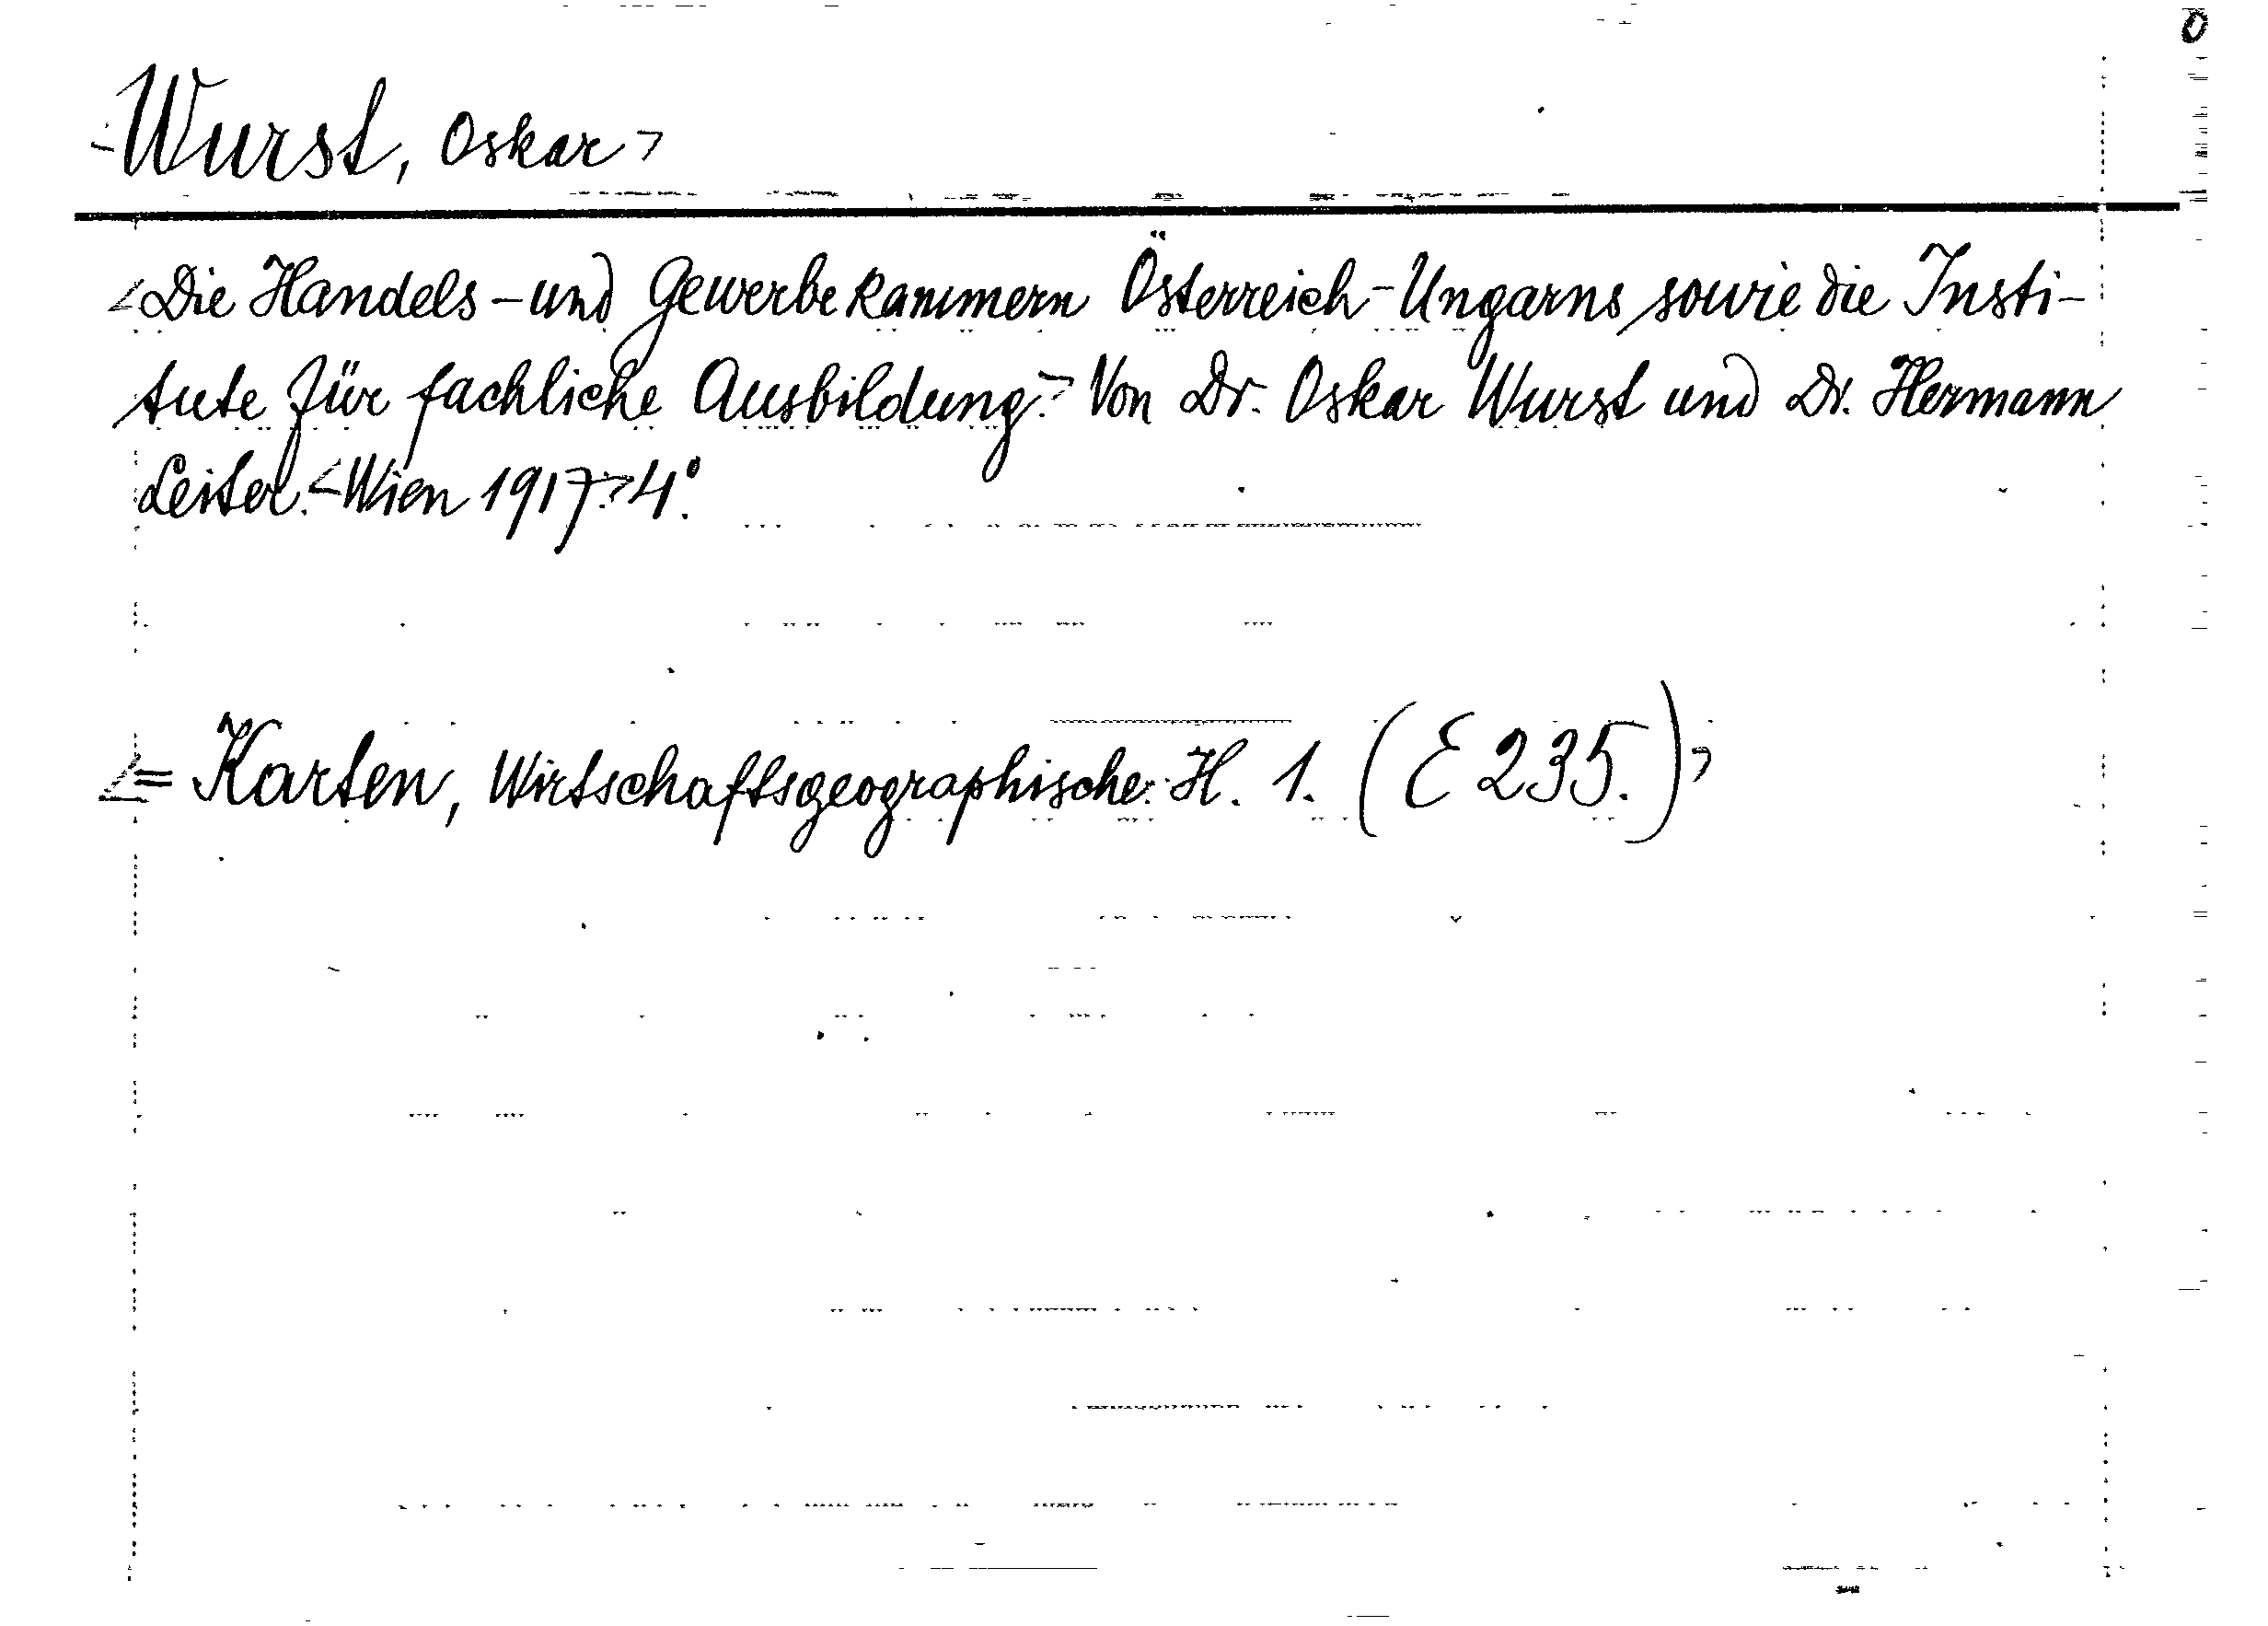 <Wurst, Oskar>
<Die Handels- und Gewerbekammern Österreich-Ungarns sowie die Insti-
tute für fachliche Ausbildung.> Von Dr. Oskar Wurst und Dr. Hermann
Leiter. <Wien 1917.> 4°.
<= Karten, Wirtschaftsgeographische. H. 1. (E 235.)>